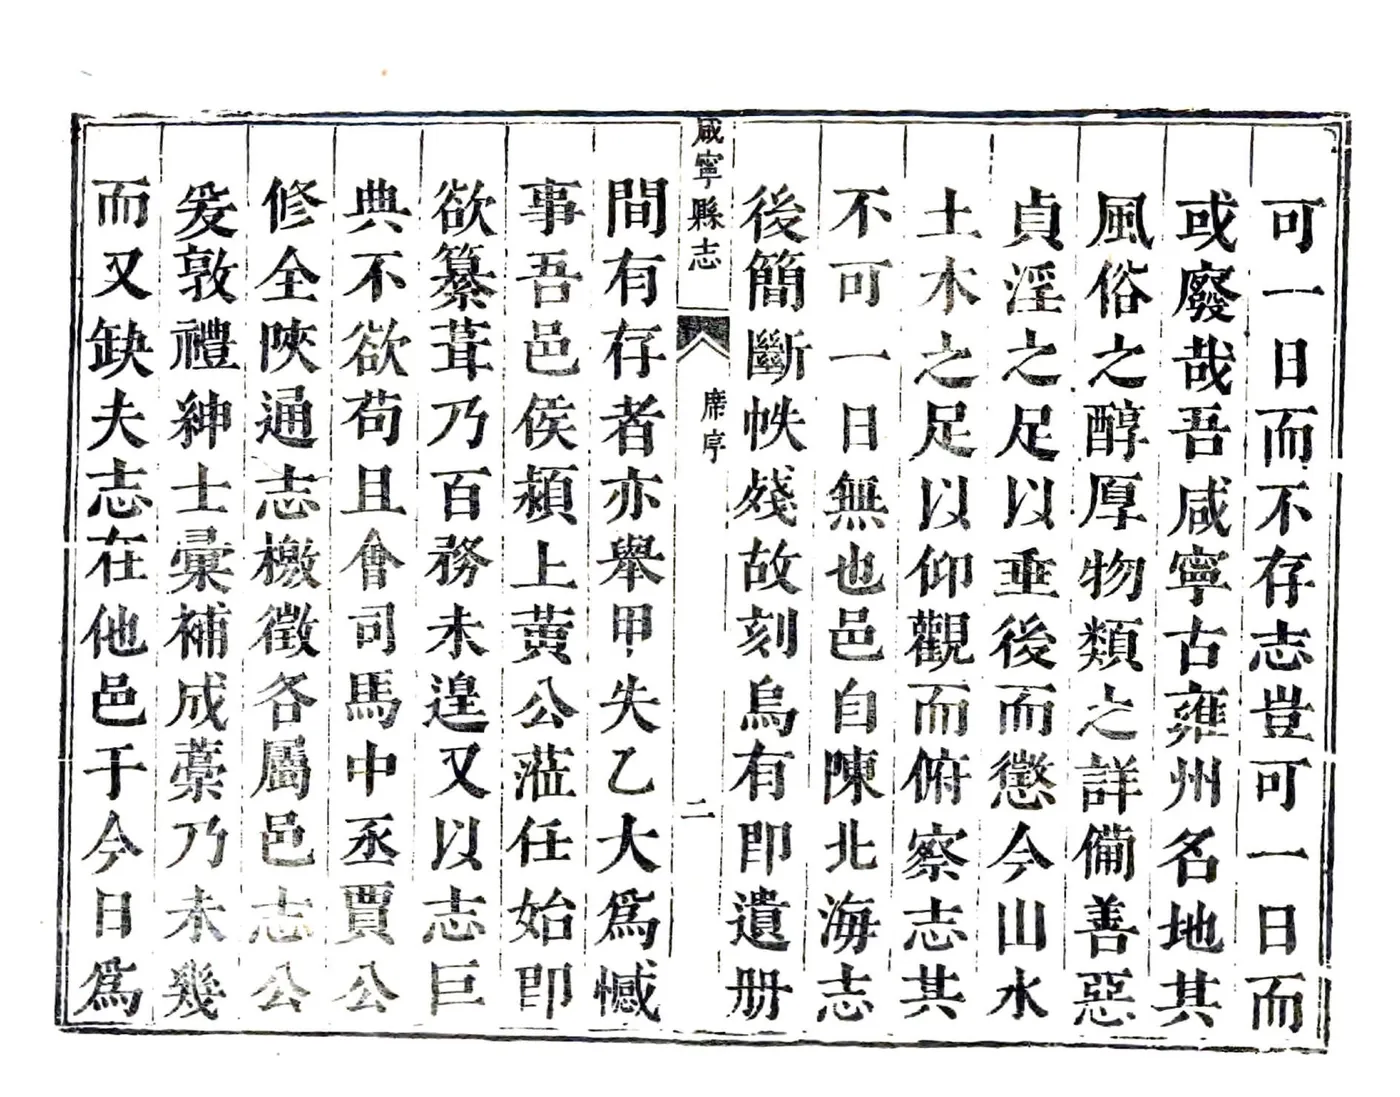 可一日而不存志豈可一日而
或廢哉吾咸寧古雍州名地其
風俗之醇厚物類之詳備善惡
貞淫之足以垂後而懲今山水
土木之足以仰觀而俯察志其
不可一日無也邑自陳北海志
後簡斷帙殘故刻烏有即遺册
咸寧縣志
席序
二
間有存者亦舉甲失乙大爲憾
事吾邑侯潁上黄公蒞任始即
欲纂葺乃百務未遑又以志巨
典不欲苟且會司馬中丞賈公
修全陝通志檄徵各屬邑志公
爰敦禮紳士彙補成藁乃未幾
而又缺夫志在他邑于今日爲